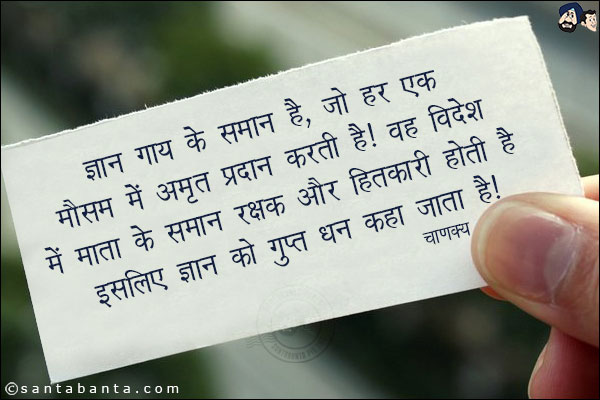 ज्ञान गाय के समान है, जो हर एक
मौसम में अमृत प्रदान करती है! वह विदेश
में माता के समान रक्षक और हितकारी होती है
इसलिए ज्ञान को गुप्त धन कहा जाता है!
चाणक्य
©santabanta.com